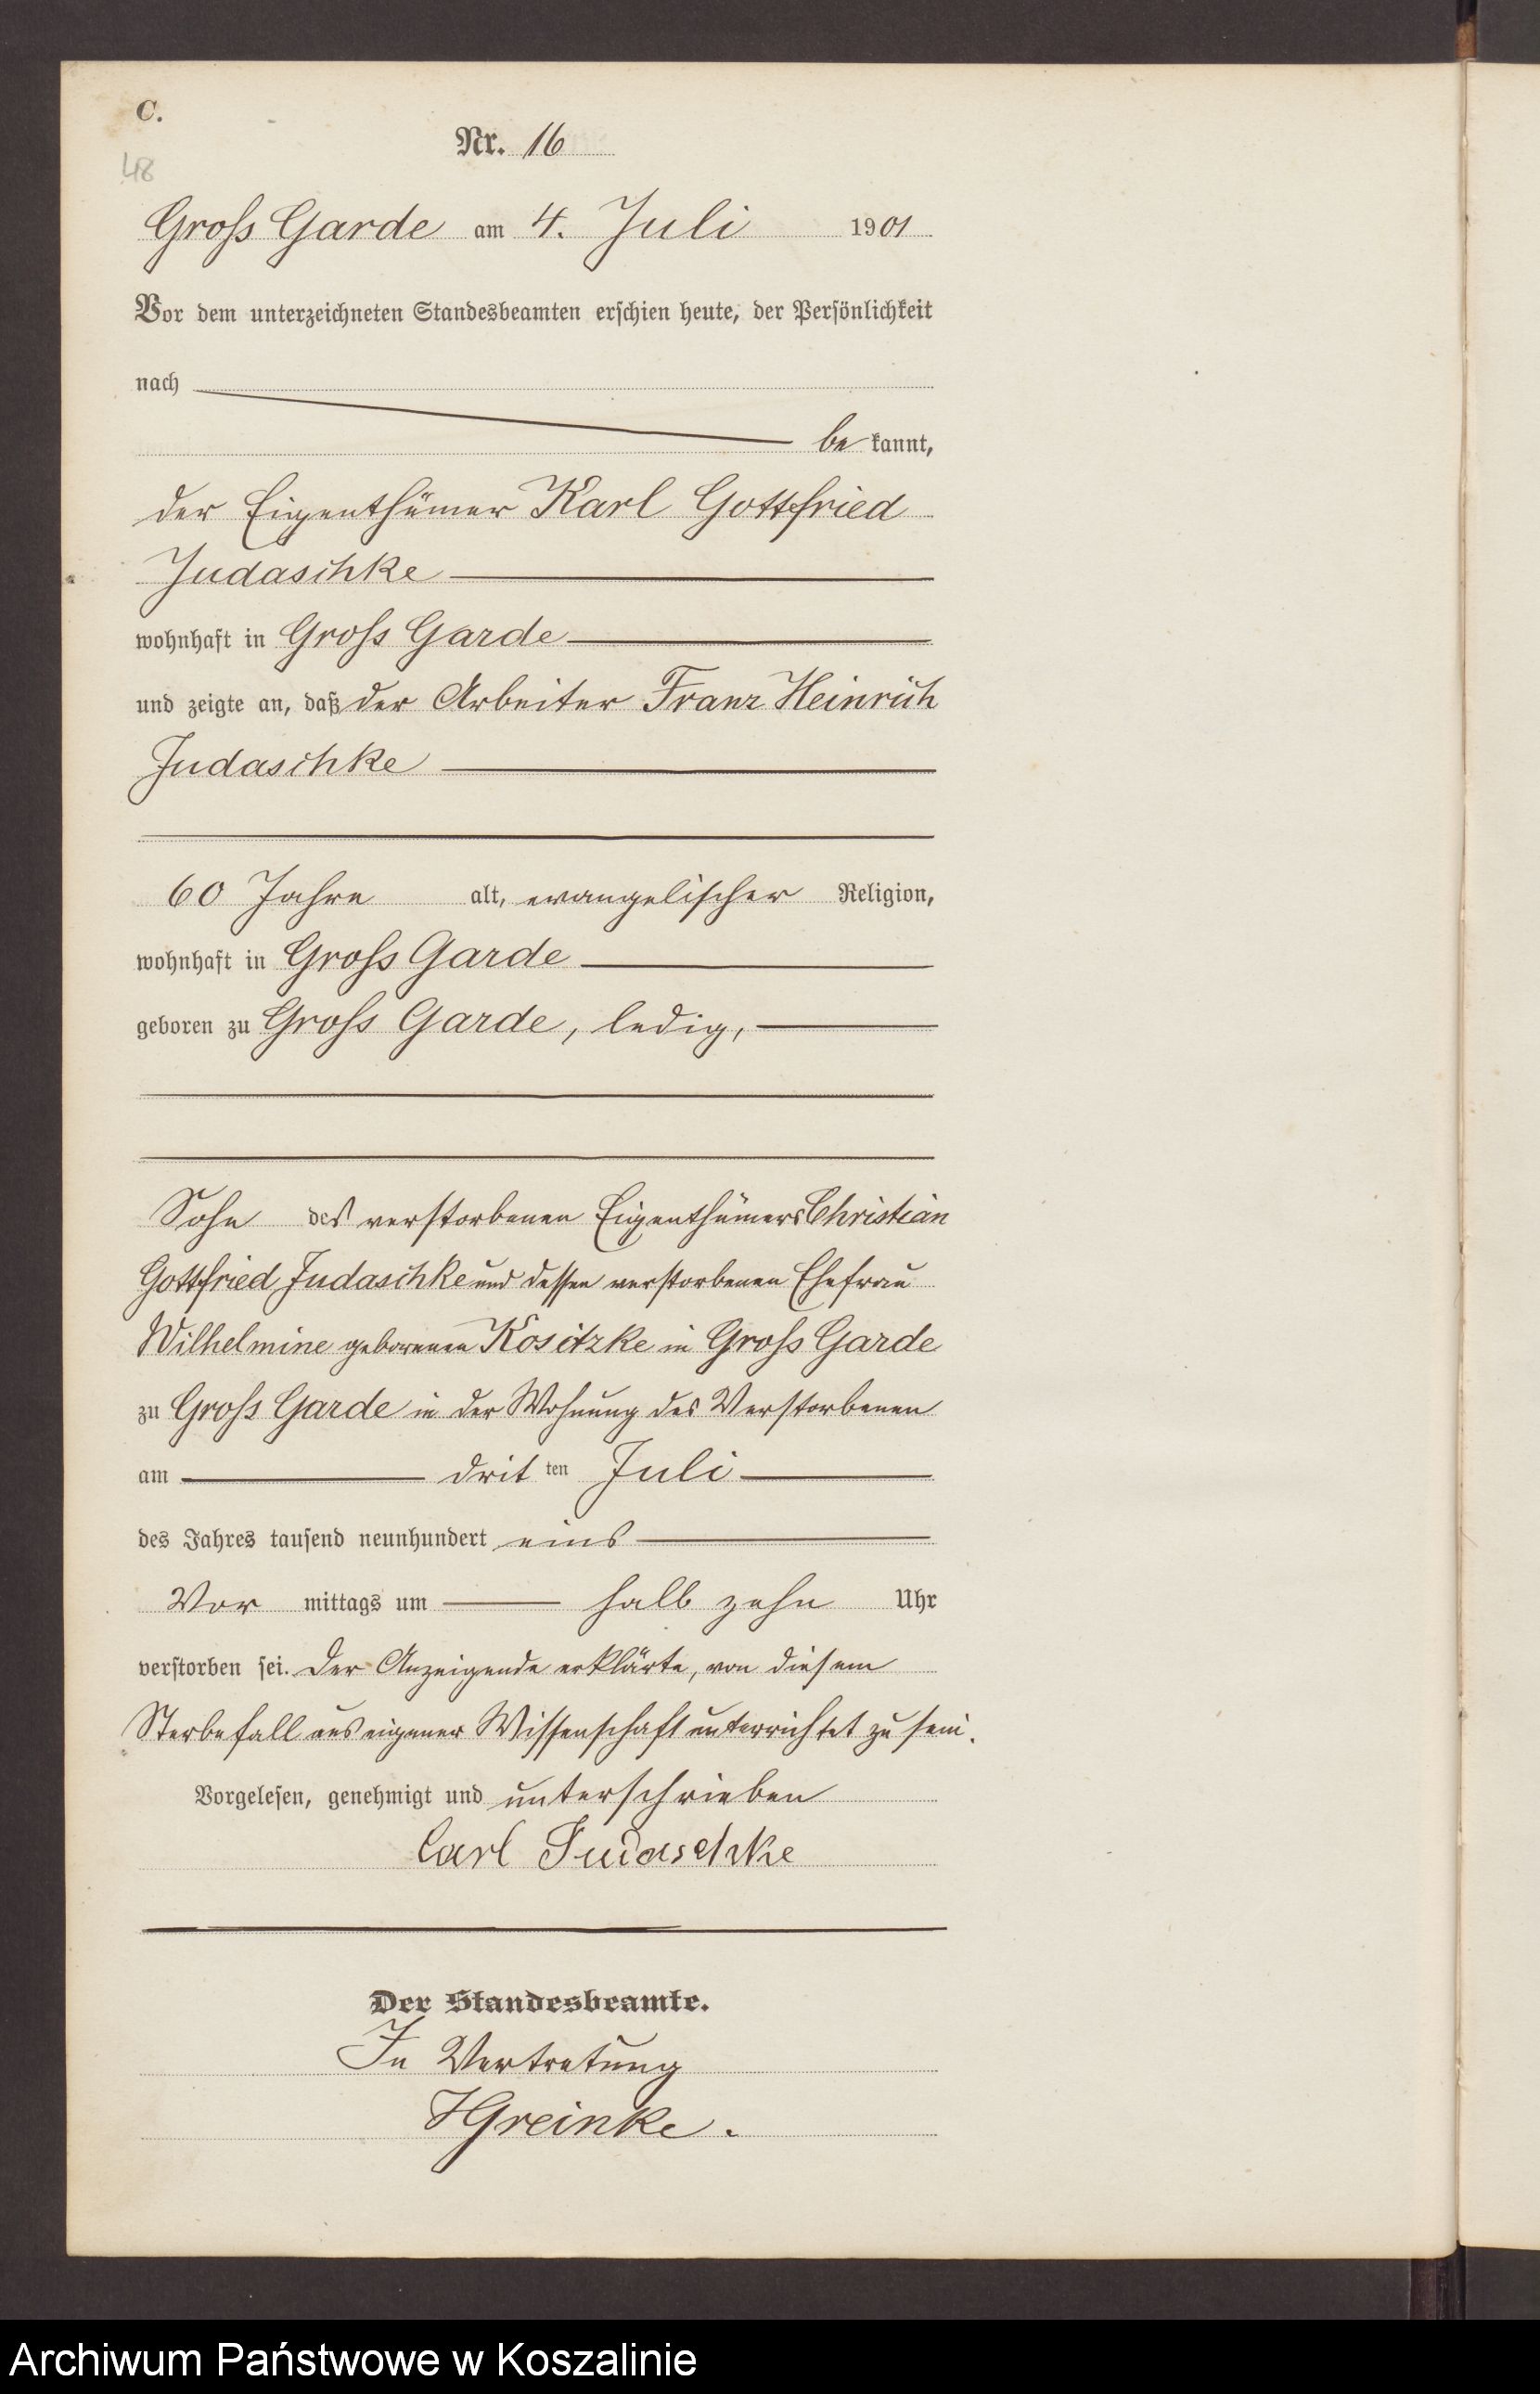 C.
Nr. 16
48
Groſs Garde am 4. Juli 1901
Vor dem unterzeichneten Standesbeamten erschien heute, der Persönlichkeit
nach
be kannt,
der Eigenthümer Karl Gottfried
Judaschke
wohnhaft in Groſs Garde
und zeigte an, daß der Arbeiter Franz Heinrich
Judaschke
60 Jahre alt, evangelischer Religion,
wohnhaft in Groſs Garde
geboren zu Groſs Garde, ledig,
Sohn des verstorbenen Eigenthümers Christian
Gottfried Judaschke und dessen verstorbenen Ehefrau
Wilhelmine geborenen Kositzke in Groſs Garde
zu Groſs Garde in der Wohnung des Verstorbenen
am drit ten Juli
des Jahres tausend neunhundert eins
Vor mittags um halb zehn Uhr
verstorben sei. Der Anzeigende erklärte, von diesem
Sterbefall aus eigener Wissenschaft unterrichtet zu sein.
Vorgelesen, genehmigt und unterschrieben
Carl Judaschke
Der Standesbeamte.
In Vertretung
HGreinke.
Archiwum Państwowe w Koszalinie